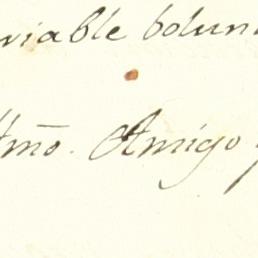 variable bolun
Atmõ. Amigo